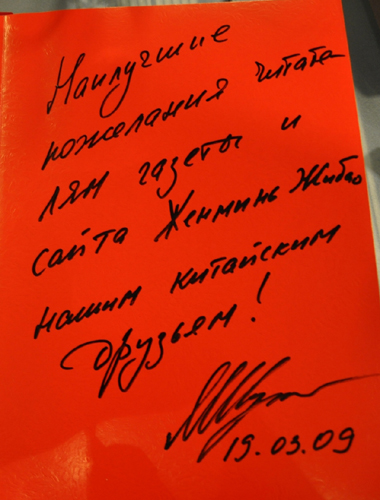 Наилучшие
пожелания читате
лям газеты и
сайта Женминь Жибао
нашим китайским
друзьям!
19.03.09